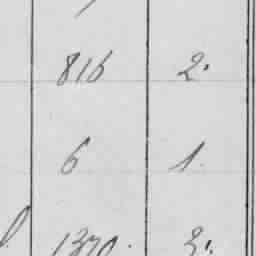 816 2.
6 1.
1370. 3.